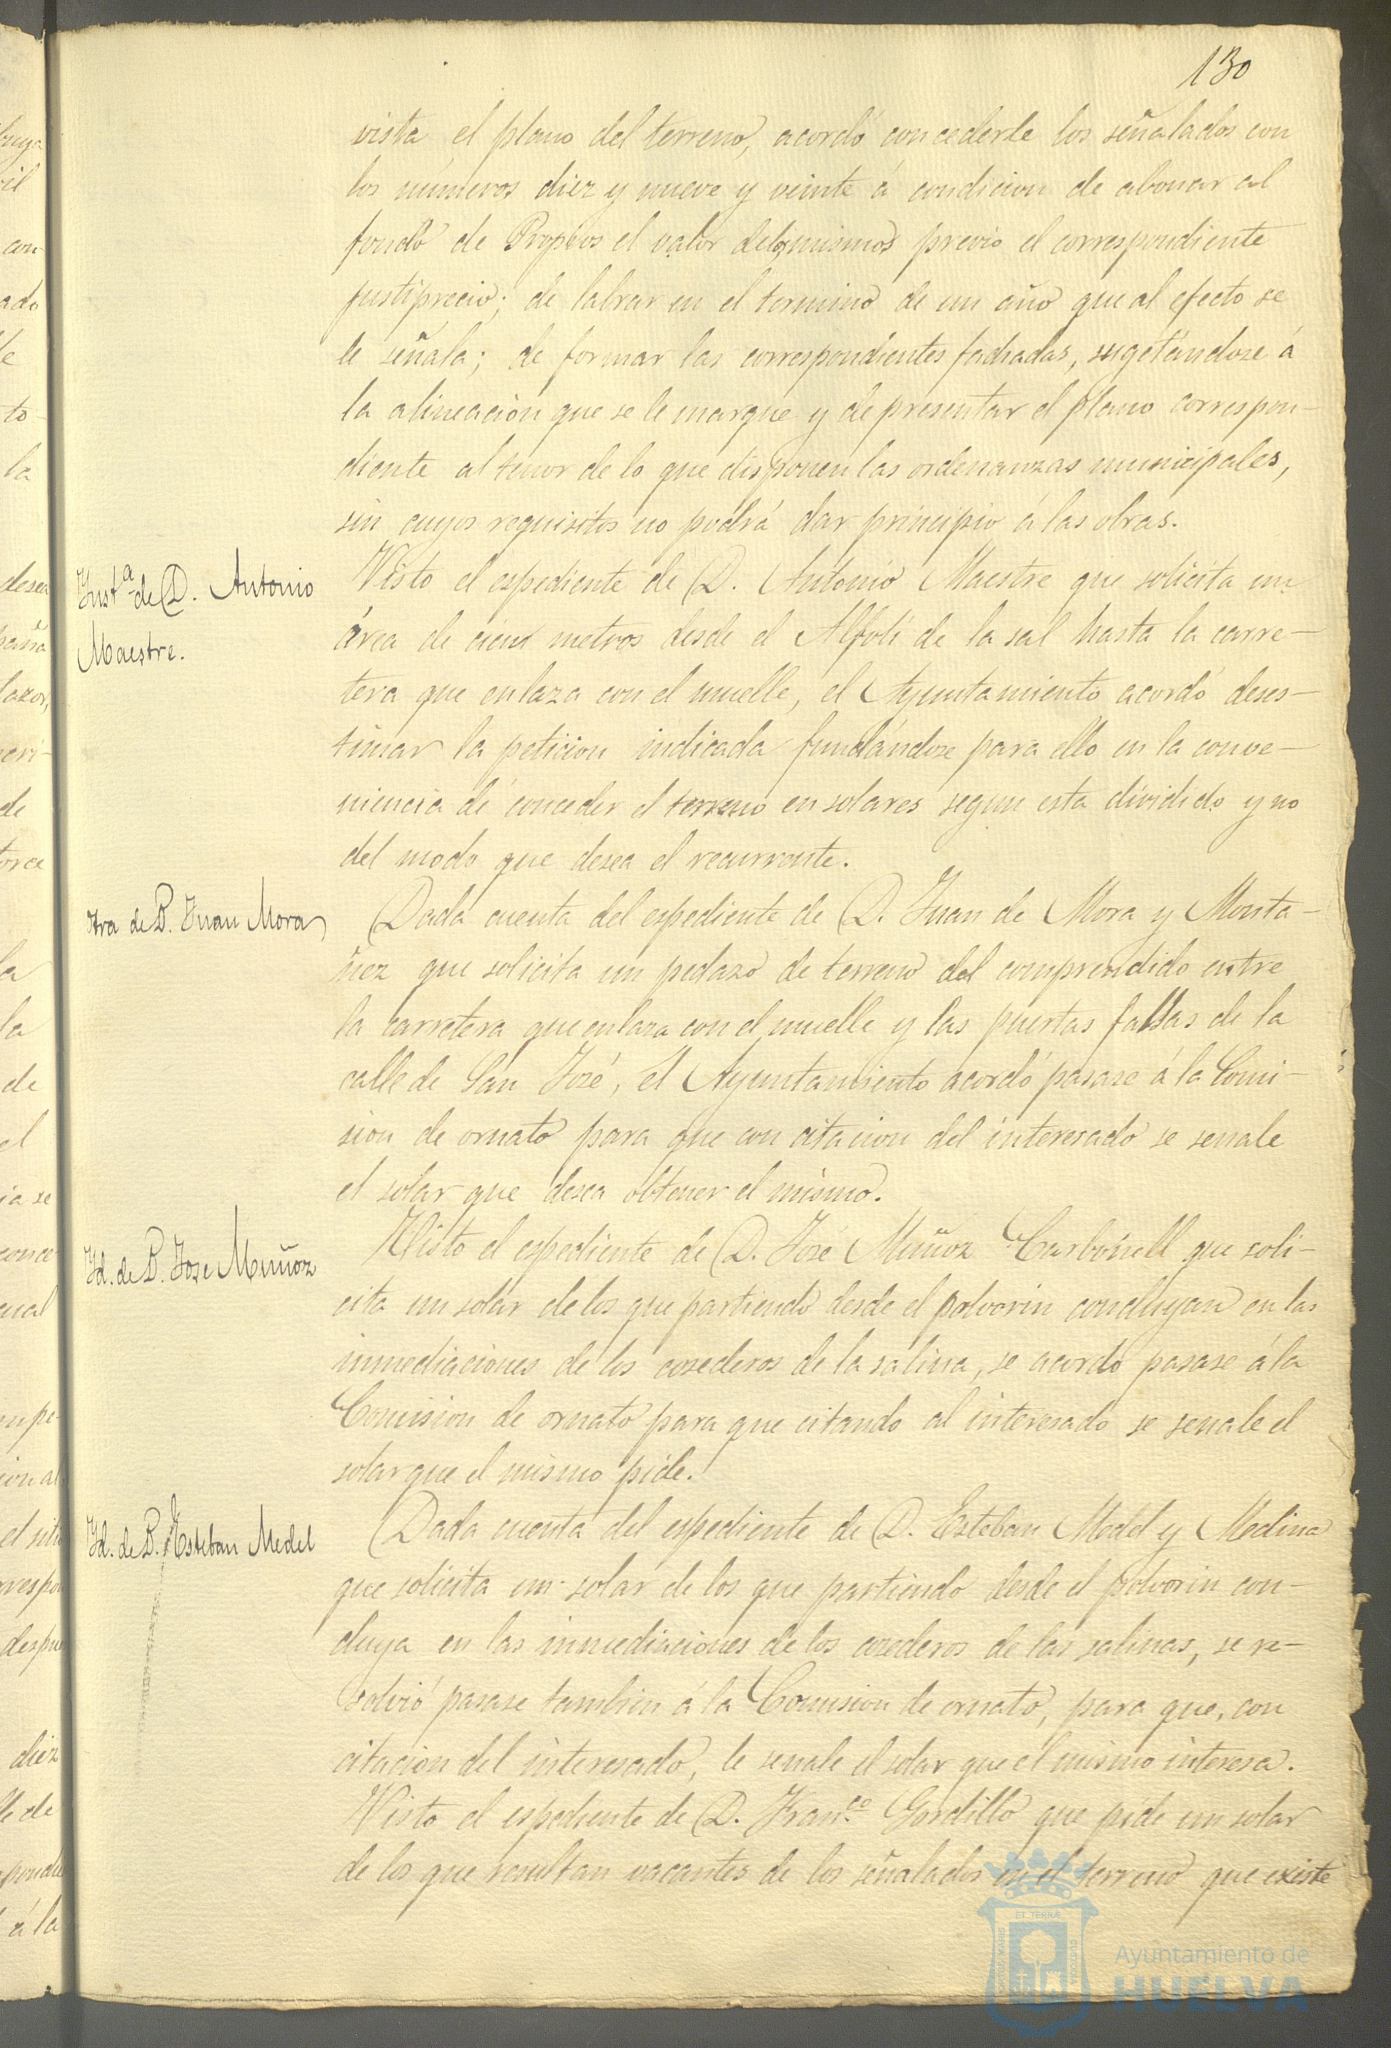 130
vista el plano del terreno, acordó concederle los señalados con
los números diez y nueve y veinte á condicion de abonar al
fondo de Propios el valor delosmismos previo el correspondiente
justiprecio; de labrar en el termino de un año que al efecto se
le señala; de formar las correspondientes fachadas, sugetándose á
la alineación que se le marque y de presentar el plano correspon-
diente al tenor de lo que disponen las ordenanzas municipales,
sin cuyos requisitos no podrá dar principio á las obras.
Inst.ª de D. Antonio
Maestre.
Visto el espediente de D. Antonio Maestre que solicita un
área de cien metros desde el Alfolí de la sal hasta la carre-
tera que enlaza con el muelle, el Ayuntamiento acordó deses-
timar la peticion indicada fundándose para ello en la conve-
niencia de conceder el terreno en solares segun esta dividido y no
del modo que desea el recurrente.
Otra de D. Juan Mora
Dada cuenta del espediente de D. Juan de Mora y Monta-
ñez que solicita un pedazo de terreno del comprendido entre
la carretera que enlaza con el muelle y las puertas falsas de la
calle de San José, el Ayuntamiento acordó pasase á la Comi-
sion de ornato para que con citacion del interesado se senale
el solar que desea obtener el mismo.
Id. de D. Jose Muñoz
Visto el espediente de D. José Muñoz Carbonell que soli-
cita un solar de los que partiendo desde el polvorin concluyan en las
inmediaciones de los cocederos de la salina, se acordó pasase á la
Comision de ornato para que citando al interesado se senale el
solar que el mismo pide.
Id. de D. Esteban Medel
Dada cuenta del espediente de D. Esteban Medel y Medina
que solicita un solar de los que partiendo desde el polvorin con-
cluya en las inmediaciones de los cocederos de las salinas, se re-
solvió pasase tambien á la Comision de ornato, para que, con
citacion del interesado, le senale el solar que el mismo interesa.
Visto el espediente de D. Fran.co Gordillo que pide un solar
de los que resultan vacantes de los señalados en el terreno que existe
Ayuntamiento de
HUELVA